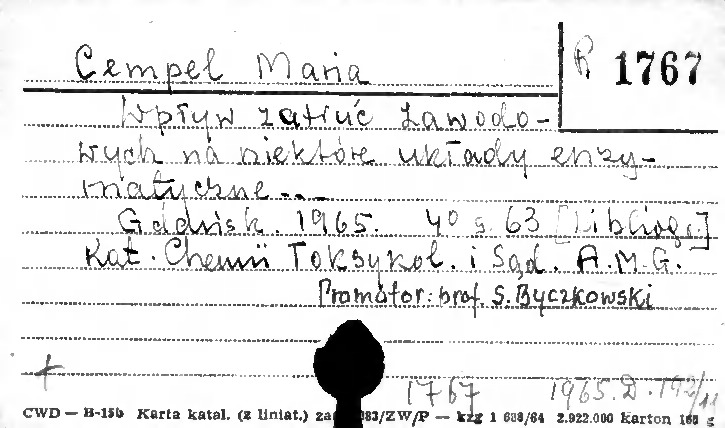 Cempel Maria
R 1767
Wpływ zatruć zawodo-
wych na niektóre układy enzy-
matyczne...
Gdańsk. 1965. 4° s. 63 [bibliogr.]
Kat. Chemii Toksykol. i Sąd. A.M.G.
Promotor: prof. S. Byczkowski
1767 1965.D.
CWD — B-15b Karta katal. (z liniat.) 683/ZW/P — kzg 1 688/64 2.922.000 karton 160 g